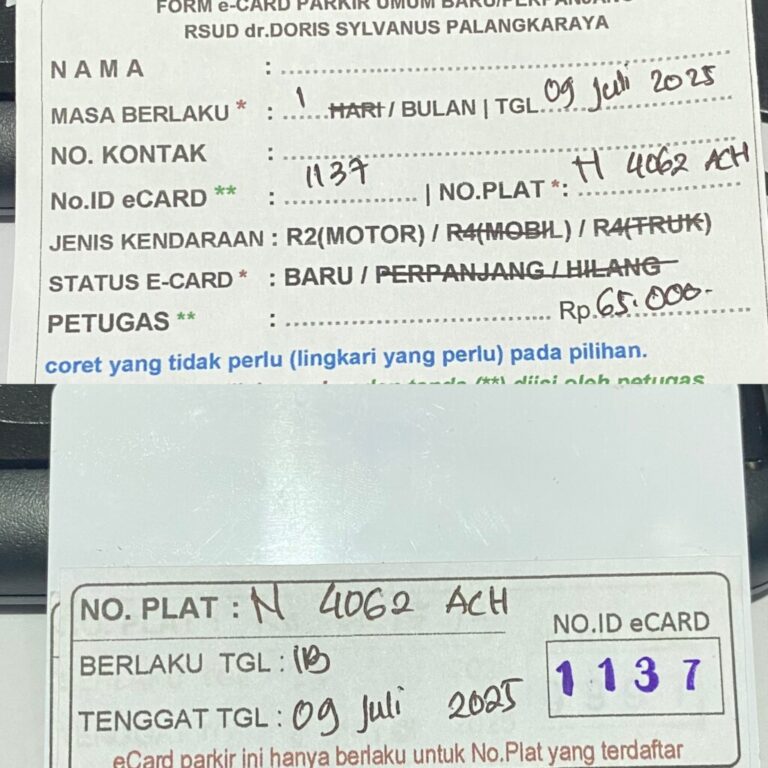 FORM e-CARD PARKIR UMUM BARU/PERPANJANG
RSUD dr.DORIS SYLVANUS PALANGKARAYA
NAMA :
MASA BERLAKU * : 1 HARI / BULAN | TGL 09 Juli 2025
NO. KONTAK :
No.ID eCARD ** : 1137 | NO.PLAT *: H 4062 ACH
JENIS KENDARAAN : R2(MOTOR) / R4(MOBIL) / R4(TRUK)
STATUS E-CARD * : BARU / PERPANJANG / HILANG
PETUGAS ** : Rp. 65.000-
coret yang tidak perlu (lingkari yang perlu) pada pilihan.
tanda (**) diisi oleh petugas
NO. PLAT : N 4062 ACH
NO.ID eCARD
BERLAKU TGL : 1B
1137
TENGGAT TGL : 09 Juli 2025
eCard parkir ini hanya berlaku untuk No.Plat yang terdaftar